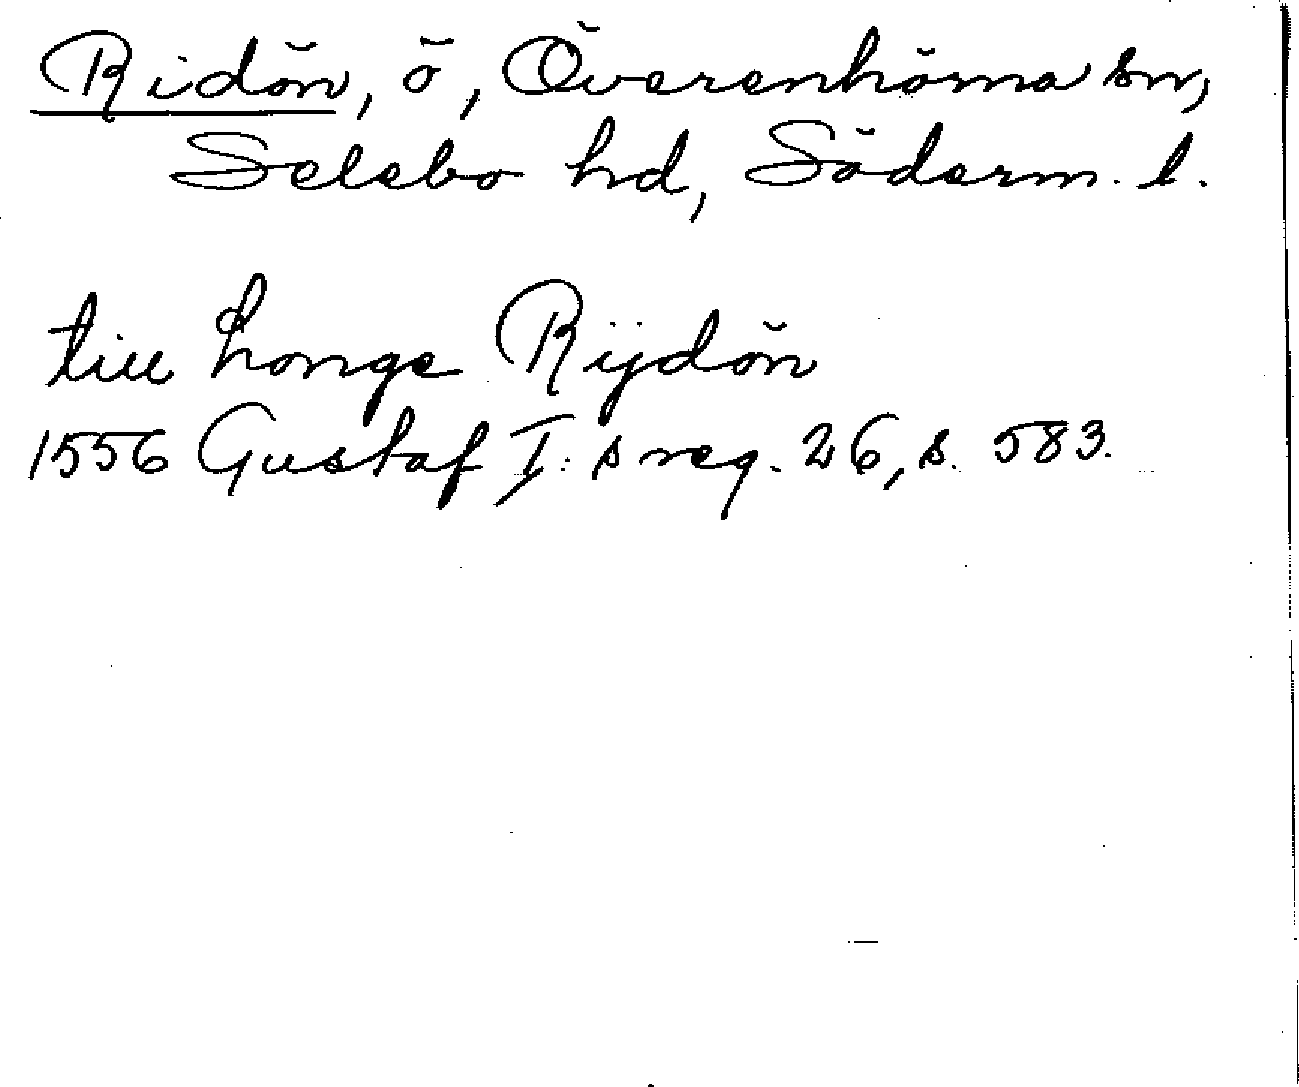 Ridön, ö, Överenhörna sn,
Selebo hd, Söderm. l.
till Longe Rijdön
1556 Gustaf I:s reg. 26, s. 583.